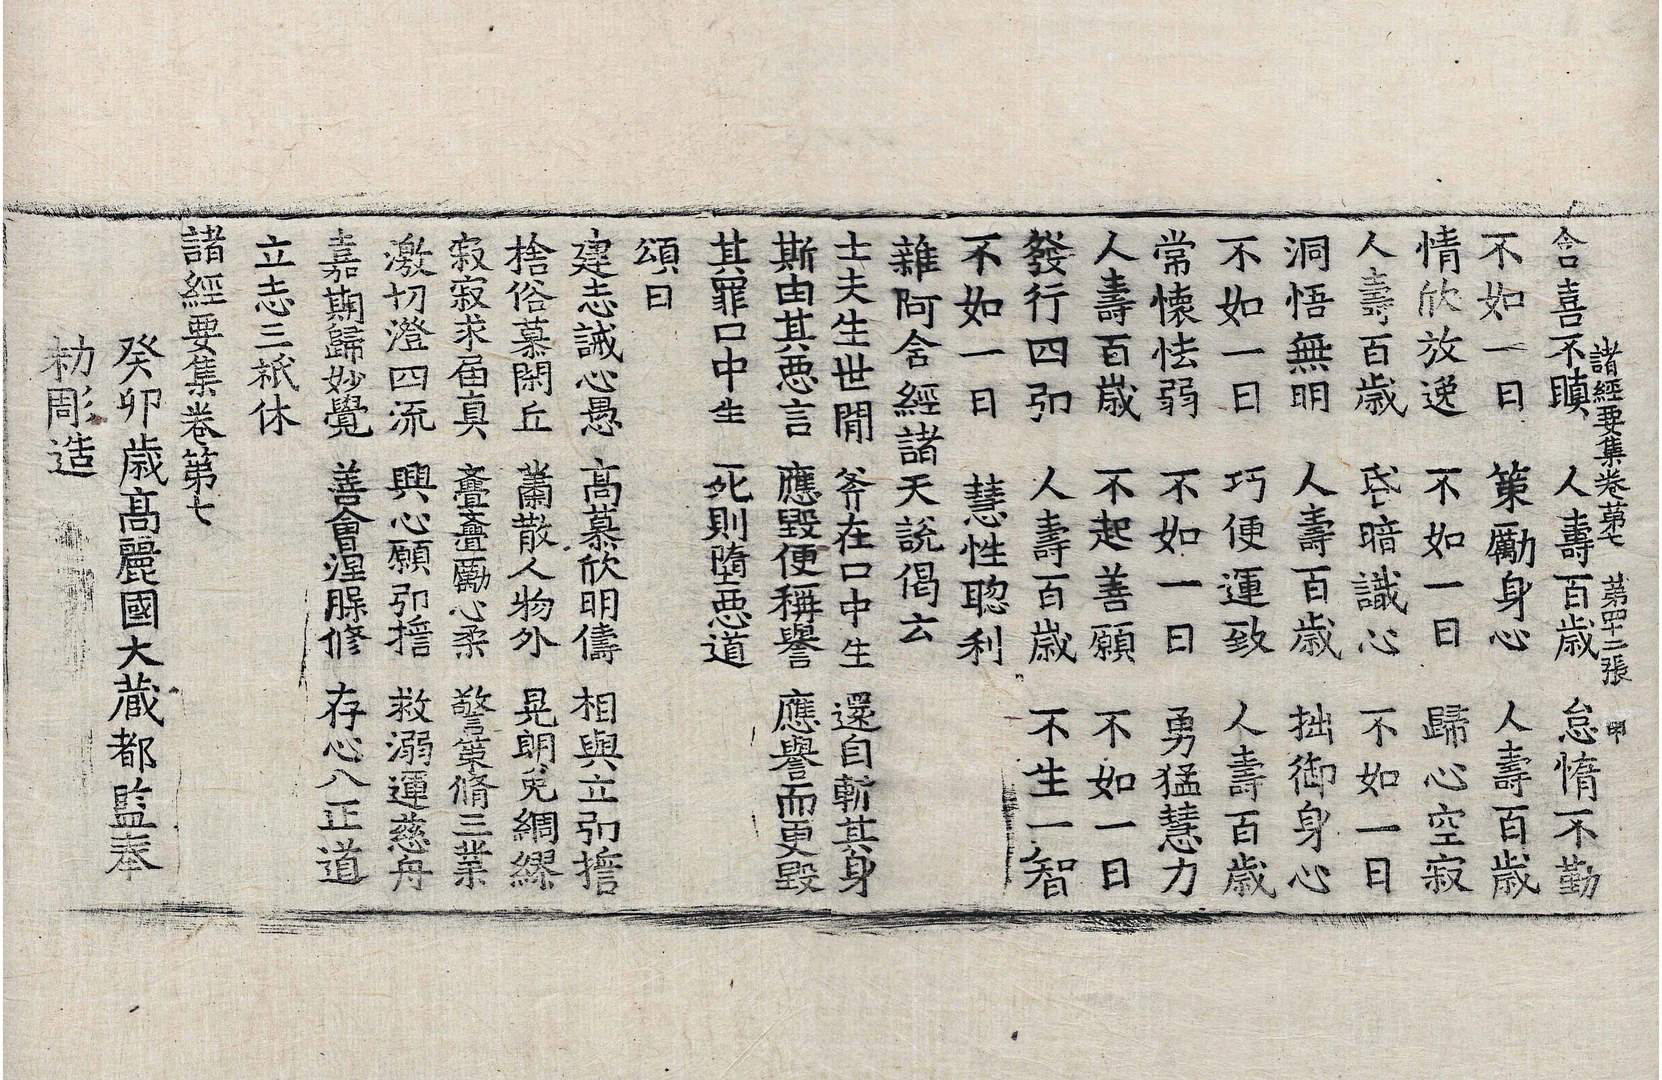 諸經要集卷第七　第四十二張　甲
含喜不瞋　人壽百歲　怠惰不勤
不如一日　策勵身心　人壽百歲
情欣放逸　不如一日　歸心空寂
人壽百歲　昏暗識心　不如一日
洞悟無明　人壽百歲　拙御身心
不如一日　巧便運致　人壽百歲
常懷怯弱　不如一日　勇猛慧力
人壽百歲　不起善願　不如一日
發行四弘　人壽百歲　不生一智
不如一日　慧性聰利
雜阿含經諸天說偈云
士夫生世間　斧在口中生　還自斬其身
斯由其惡言　應毀便稱譽　應譽而更毀
其罪口中生　死則墮惡道
頌曰
建志誡心愚　高慕欣明儔　相與立弘擔
捨俗慕閑丘　蕭散人物外　晃朗免綢繆
寂寂求届真　亹亹勵心柔　警策脩三業
激切澄四流　興心願弘擔　救溺運慈舟
嘉期歸妙覺　善會涅脭修　存心八正道
立志三祇休
諸經要集卷第七
癸卯歲高麗國大藏都監奉
勑彫造